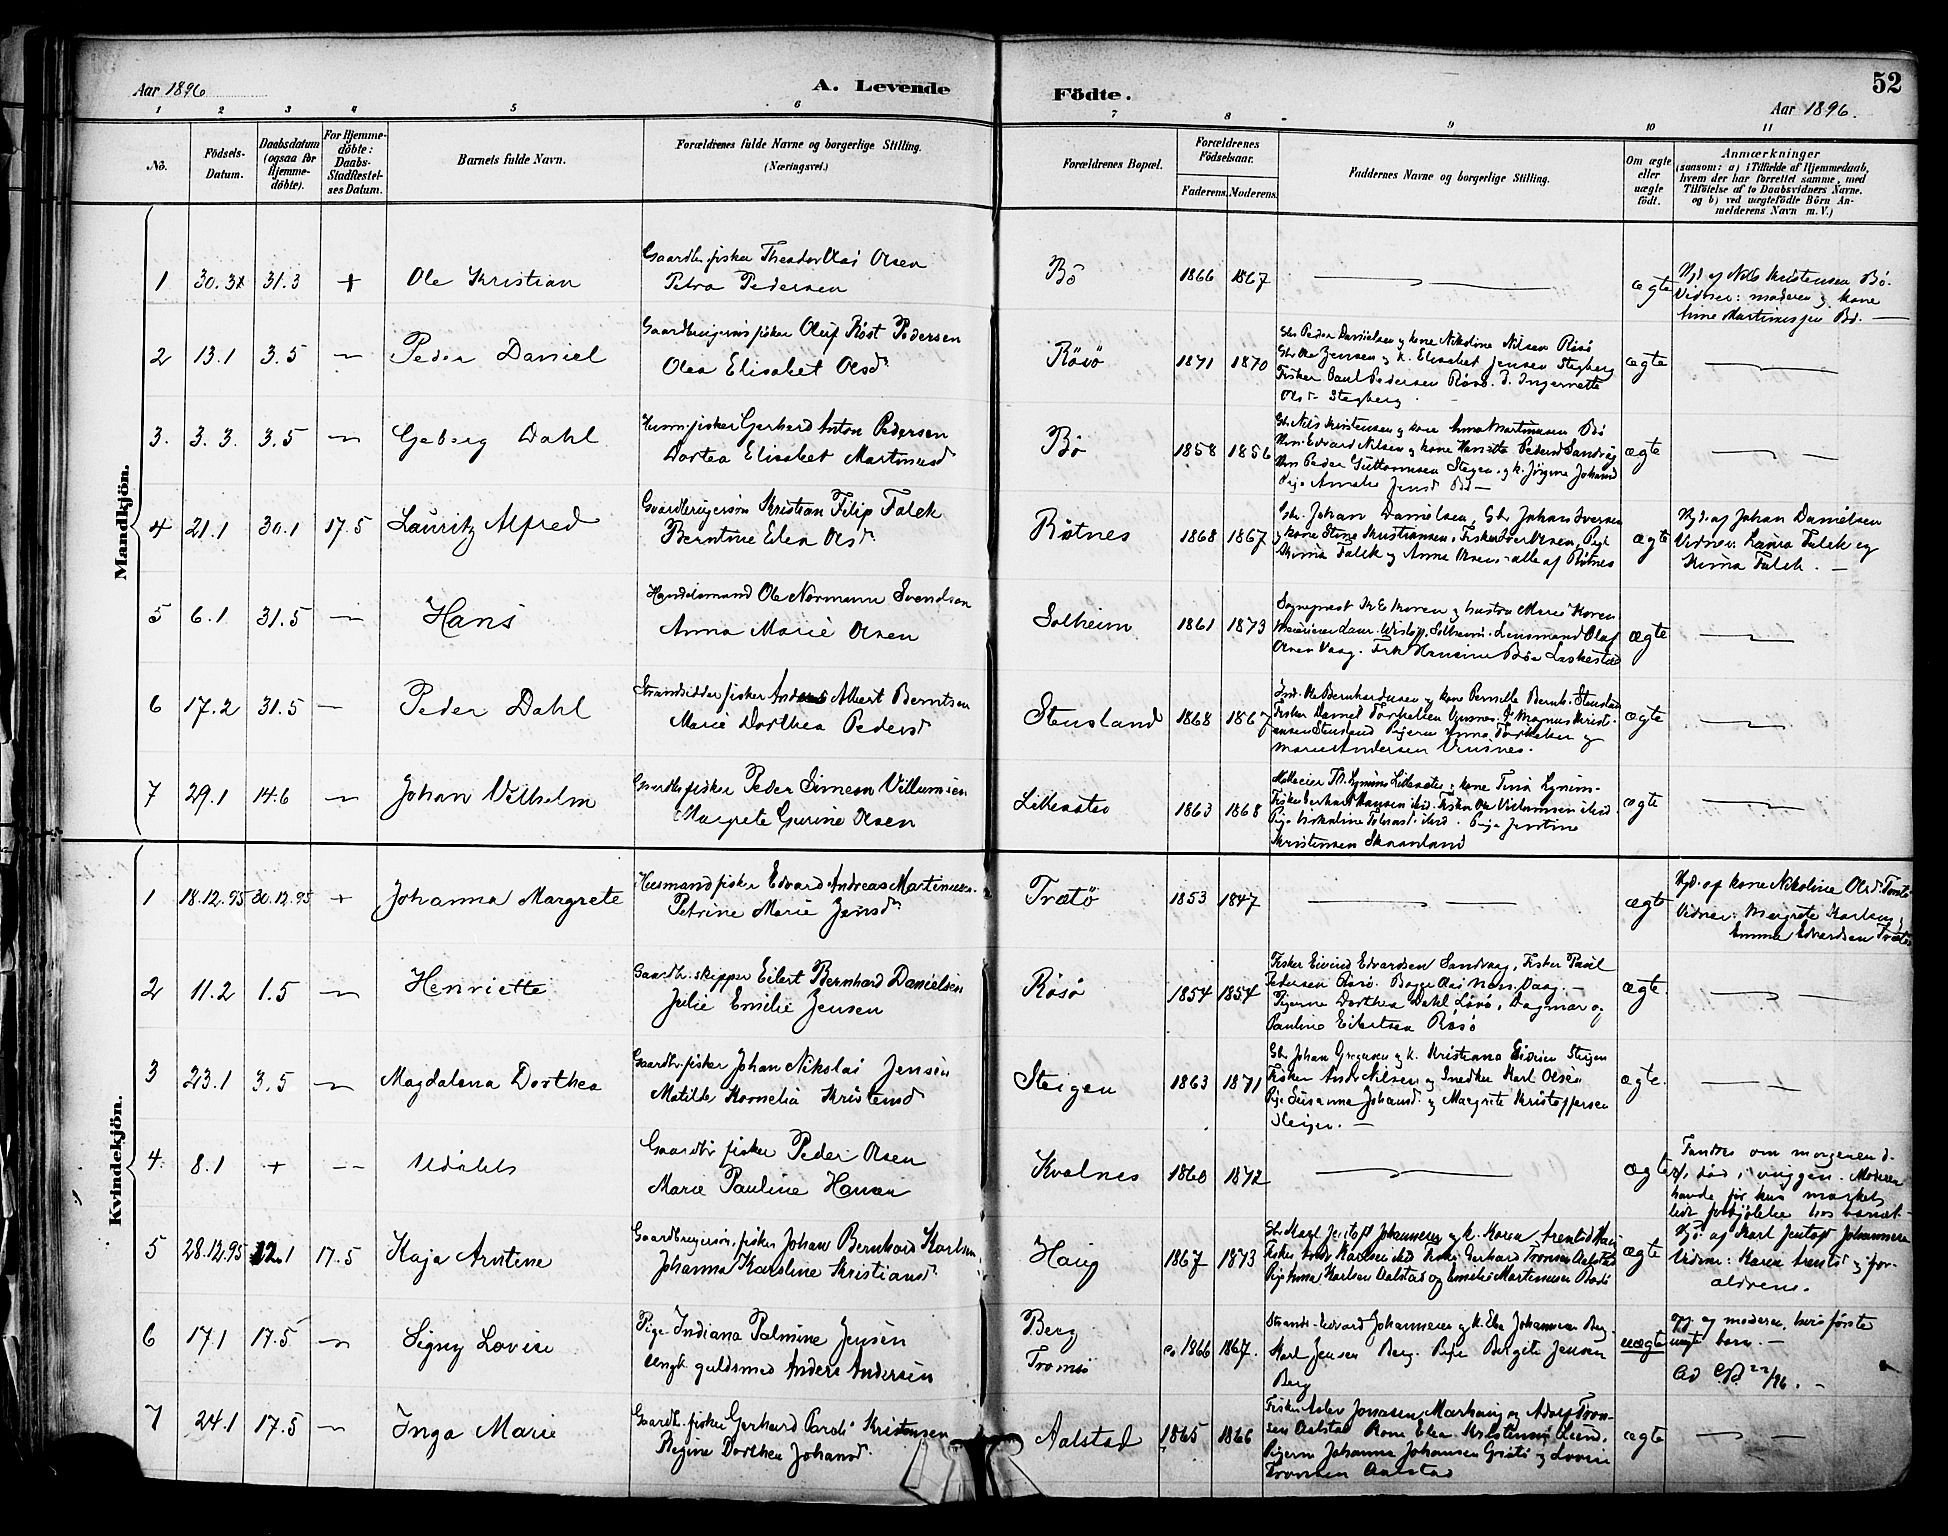 52
Aar 1896
A. Levende
Födte.
Aar 1896.
1 2 3 4 5 6 7 8 9 10 11
No.
Födsels-
Datum.
Daabsdatum
(ogsaa for
Hjemme-
döbte).
For Hjemme-
döbte:
Daabs-
Stadfæstel-
ses Datum.
Barnets fulde Navn.
Forældrenes fulde Navne og borgerlige Stilling.
(Næringsvei.)
Forældrenes Bopæl.
Forældrenes
Födselsaar.
Faderens. Moderens.
Faddernes Navne og borgerlige Stilling.
Om ægte
eller
uægte
födt.
Anmærkninger
(saasom: a) i Tilfælde af Hjemmedaab,
hvem der har forrettet samme, med
Tilföielse af to Daabsvidners Navne.
og b) ved uægtefödte Börn An-
melderens Navn m. V.)
Mandkjön.
1 30.3 31.3 + Ole Kristian
Gaardbr. fisker Theodor Olai Olsen
Petra Pedersen
Bö 1866 1867 ægte
Hjd. af Nils Kristensen Bö.
Vidner: moderen g kone
Anna Martinussen Bö.
2 13.1 3.5 Peder Daniel
Gaardbrugersøn fisker Oluf Röst Pedersen
Olea Elisabet Olsd.
Rösö 1871 1870
Gbr Peder Danielsen g kone Nikoline Nilsen Rösö
Gbr Ole Jensen g k. Elisabet Jensen Stegberg
Fisker Paul Pedersen Rösö. P. Ingernette
Olsd Stegberg.
ægte
3. 3.3. 3.5 Geberg Dahl
Husm. fisker Gerhard Anton Pedersen
Dortea Elisabet Martinusd
Bö 1858 1856
Gbr Nils Kristensen g kone Anna Martinusen Bö
Hm. Edvard Nilsen g kone Hansette Pedersd Sandvåg
Hm Peder Guttormsen Stegen g k. Jörgine Johansd
Pige Amalie Jensd Bö
ægte
4 21.1 30.1 17.5 Lauritz Alfred
Gaardbrugersøn Kristian Filip Falck
Berntine Elea Olsd.
Rötnes 1868 1867
Gbr. Johan Danielsen, Gbr Johan Iversen
g kone Stine Kristiansen, Fisker Iver Olsen, Pige
Mina Falck g Anna Olsen - alle af Rötnes
ægte
Hjd. af Johan Danielsen
Vidner: Laura Falck og
Mina Falck.
5 6.1 31.5 Hans
Handelsmand Ole Normann Svendsen
Anna Marie Olsen
Solheim 1861 1873
Sogneprest K E Koren g hustru Marie Koren
Solheim. Lensmand Olaf
Olsen Vaag. Frk Hansine Bö Laskestad
ægte
6 17.2 31.5 Peder Dahl
Strandsidder fisker Anders Albert Berntsen
Marie Dorthea Pedersd
Stensland 1868 1867
Ole Bernhardusen g kone Pernille Bernh. Stensland
Fisker Daniel Torkelsen Vinsnes. Magnus Kristi-
ansen Stensland Pigerne Anna Torkelsen g
Maren Andersen Vinsnes.
ægte
7 29.1 14.6 Johan Vilhelm
Gaardbr. fisker Peder Simeon Villumsen
Margrete Gurine Olsen
Lilleasto 1863 1868
Fisker Gerhard Hansen ibid. Fisker Ole Villumsen ibid.
Kristensen Skaanland
ægte
Kvindekjön.
1 18.12.95 30.12.95 + Johanna Margrete
Husmand fisker Edvard Andreas Martinussen
Petrine Marie Jensd.
Trætö 1853 1847 ægte
Hjd. af kone Nikoline Olsd. Trætö
Vidner: Margrete Karlsen g
Emma Edvardsen Trætö
2 11.2 1.5 Henriette
Gaardbr. skipper Eilert Bernhard Danielsen
Julie Emilie Jensen
Rösö 1854 1854
Fisker Eivind Edvardsen Sandvaag, Fisker Paul
Pedersen Rösö. Vaag.
Pigerne Dorthea Dahl Lövö, Dagmar og
Pauline Eilertsen Rösö
ægte.
3 23.1 3.5 Magdalena Dorthea
Gaardbr. fisker Johan Nikolai Jensen
Matilde Kornelia Kristensd
Steigen 1863 1871
Gbr Johan Gregusen g k. Kristiana Steigen
Fisker Andr Nilsen g Snedker Karl Olsen
Pige Susanna Johansd g Margrete Kristoffersen
Steigen.
ægte.
4. 8.1 + -- Udöbt
Gaardbr fisker Peder Olsen
Marie Pauline Hansen
Kvalnes 1860 1872 ægte
Fandtes om morgenen d.
død i vuggen. Moderen
havde før hun mærket
lidt forkjølelse hos barnet.
5 28.12.95 12.1 17.5 Kaja Arntine
Gaardbrugersøn, fisker Johan Bernhard Karlsen
Johanna Karoline Kristiansd.
Haug 1867 1873
Gbr Karl Jentoft Johannesen g k. Karen Arentsd Haug
Fisker Andr Karlsen ibid Fisker Gerhard Tronsen Aalstad
Pige Anna Karlsen Aalstad og Emelie Martinusen Bodö
ægte
Hjd. af Karl Jentoft Johannesen
Vidner: Karen Arentsd g for-
ældrene.
6 17.1 17.5 Signy Lovise
Pige Indiana Palmine Jensen
Ungk. guldsmed Anders Andersen
Berg
Tromsö
ca 1866 1867.
Strands. Edvard Johannesen g k. Elea Johannesen Berg.
Karl Jensen Berg. Pige Bergete Jensen
Berg
uægte
Opg. af moderen, hans første
uægte barn.
22/96.
7 24.1 17.5 Inga Marie
Gaardbr. fisker Gerhard Paroli Kristensen
Regine Dorthea Johansd.
Aalstad 1865 1866
Fisker Aslev Jonassen Marhaug og Adolf Tron-
sen Aalstad Kone Elea Kristensen Lund,
Pigerne Johanna Johansen Grötö og Lovise
Tronsen Aalstad
ægte